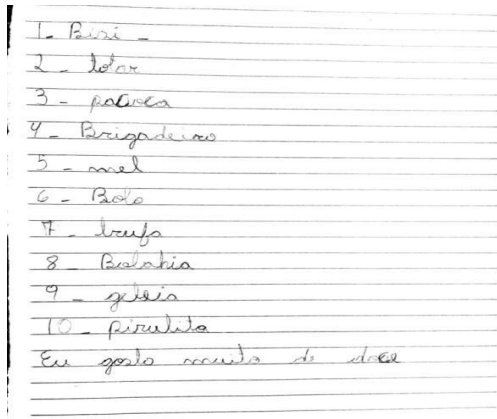 1- Bisi -
2 - lolar
3 - pacoca
4- Brigadeiro
5 - mel
6 - Bolo
7 - trufa
8 - Bolahia
9 - geleia
10 - pirulito
Eu gosto muito de doce